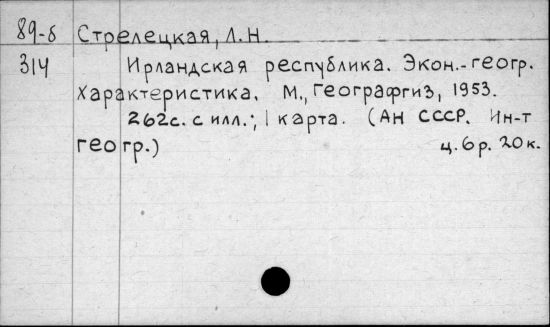 89-б Стрелецкая, Л.Н.
314 Ирландская республика. Экон.-геогр.
характеристика. М., Географгиз, 1953.
262с. с илл.; 1 карта. (АН СССР. Ин-т
геогр.) ц. 6р. 20к.